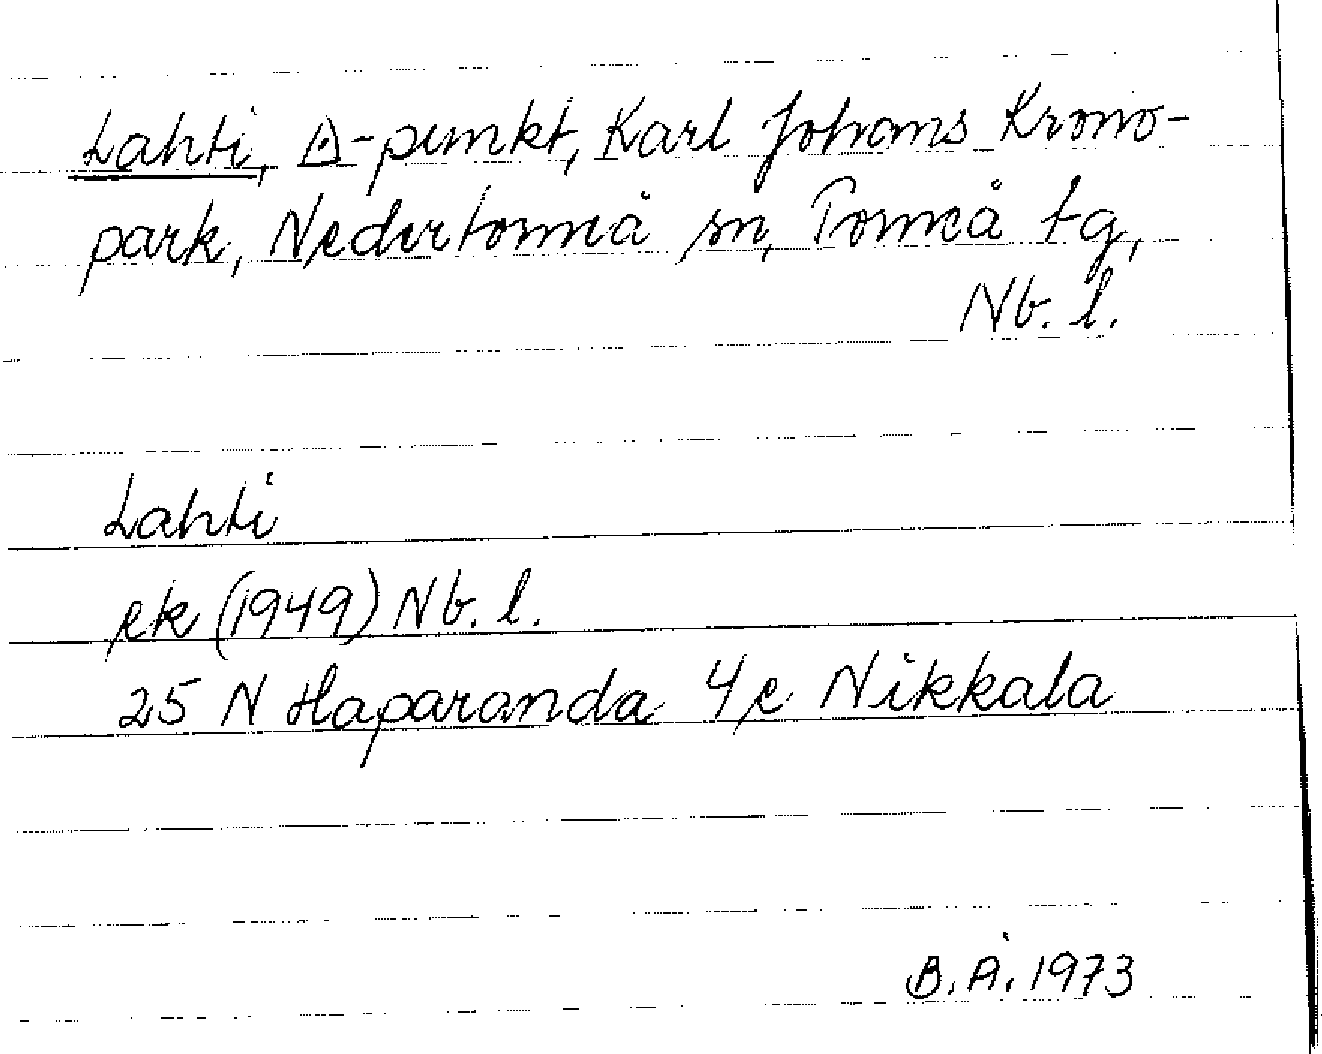 Lahti, △-punkt, Karl Johans Krono-
park, Nedertorneå sn, Torneå tg,
Nb. l.
Lahti
ek (1949) Nb. l.
25 N Haparanda 4e Nikkala
B.Å. 1973